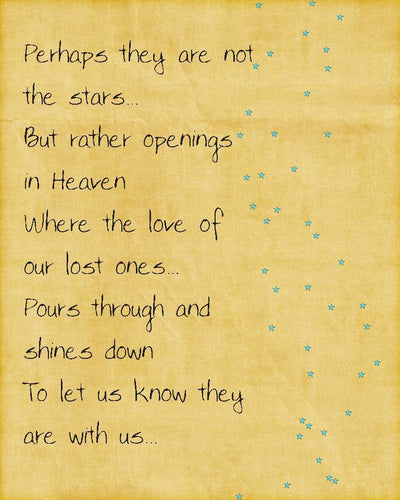 Perhaps they are not
the stars...
But rather openings
in Heaven
Where the love of
our lost ones...
Pours through and
shines down
To let us know they
are with us...